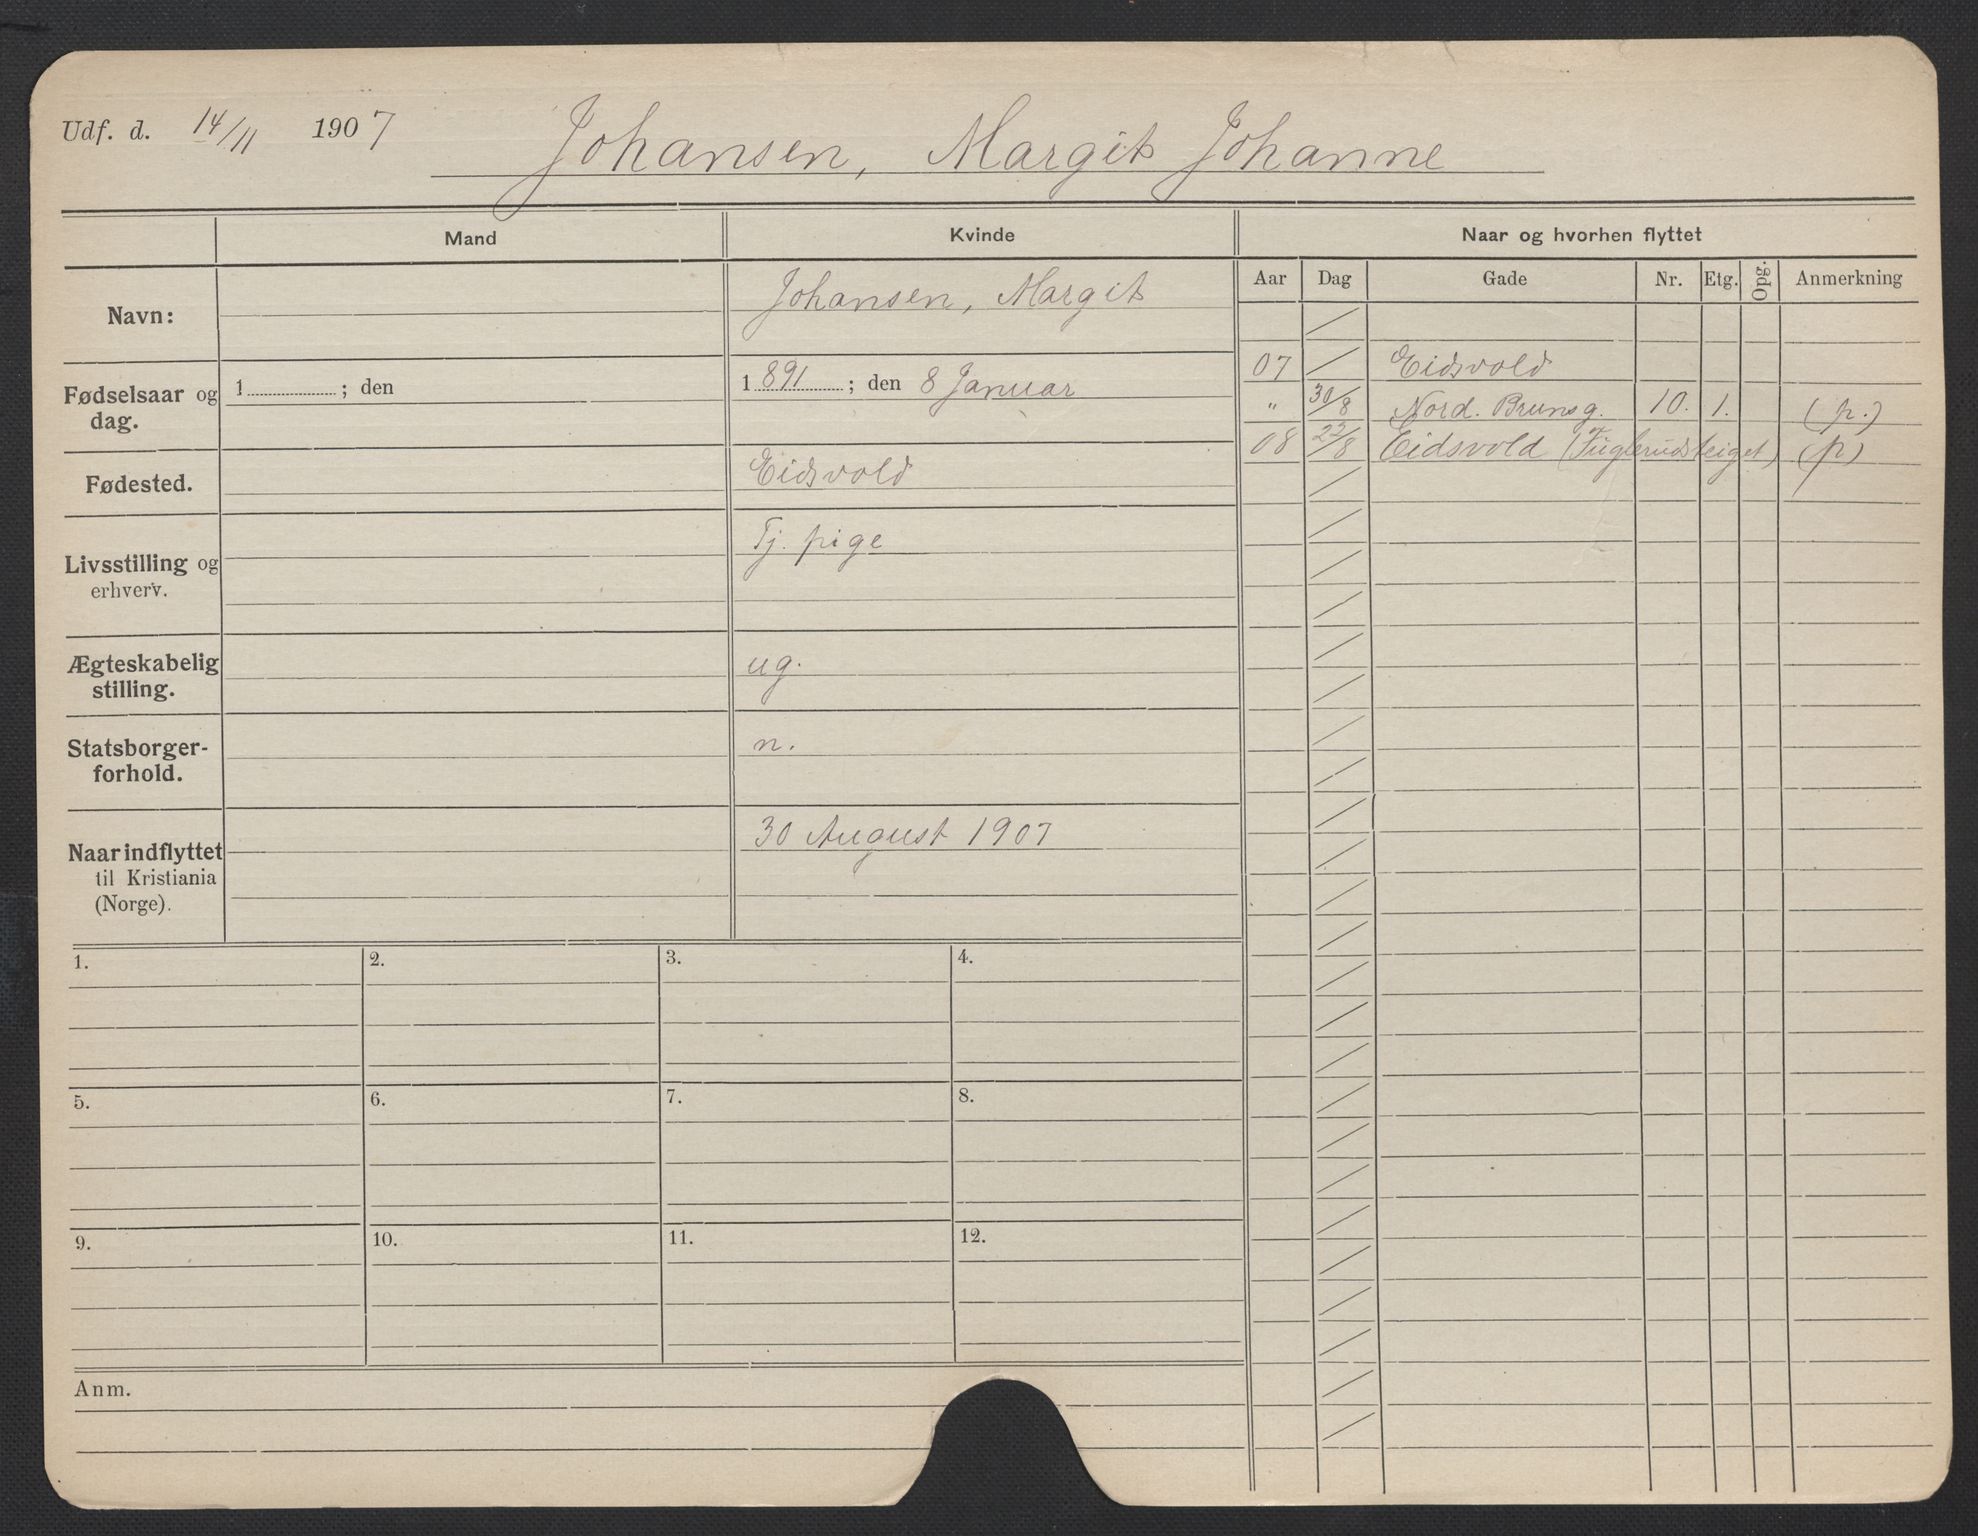 Udf. d. 14/11 1907
Johansen, Margit Johanne
Mand Kvinde Naar og hvorhen flyttet
Aar Dag Gade Nr. Etg. Opg. Anmerkning
Navn: Johansen, Margit
Fødselsaar og dag. 1 ; den 1891 ; den 8 Januar
Fødested. Eidsvold
Livsstilling og erhverv. Tj. pige
Ægteskabelig stilling. ug.
Statsborger-
forhold. n.
Naar indflyttet
til Kristiania
(Norge). 30 August 1907
07 / Eidsvold
" 30/8 Nord. Brunsg. 10. 1. (p.)
08 22/8 Eidsvold (Fuglerudsteiget) (p)
1. 2. 3. 4.
5. 6. 7. 8.
9. 10. 11. 12.
Anm.